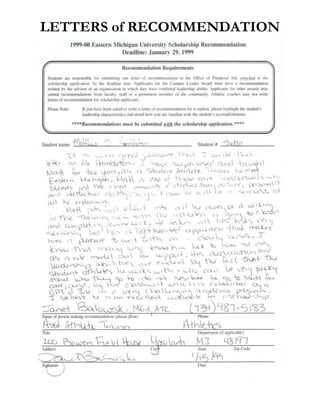 LETTERS of RECOMMENDATION
1999-00 Eastern Michigan University Scholarship Recommendation
Deadline: January 29, 1999
Recommendation Requirements
Students are responsible for submitting one letter of recommendation to the Office of Financial Aid, attached to the
scholarship application, by the deadline date. Applicants for the Campus Leader Award must have a recommendation
written by the advisor of an organization in which they have exhibited leadership ability. Applicants for other awards may
submit recommendations from faculty, staff or a prominent member of the community. Athletic coaches may not write
letters of recommendation for scholarship applicants.
Please Note: If you have been asked to write a letter of recommendation for a student, please highlight the student's
leadership characteristics and detail how you are familiar with the student's accomplishments.
****Recommendations must be submitted with the scholarship application.****
Student name: Student #
It is with great pleasure that I write this
letter for Mr. I have supervised and taught
Matt for two years as a Student Athletic Trainer here at
Eastern Michigan. Matt is one of those rare individuals who
blends just the right amounts of dedication, desire, personality
and intellectual ability. he will be a success at
all he endeavors.
Matt puts all effort into all he does, be it working
in the Training room with the athletes, or going to class
and completing. He takes all his roles very
seriously, but has a lighthearted approach that makes
him a pleasure to work with on a daily basis. I
know that many look to him not only
as a role model but for support. His dedication and
leadership abilities are evident by the fact that the
student athletes he works with can be very picky
about who they go to do not hesitate to go to Matt for
care. which is exhibited by a
GPA in a very challenging academic program.
I believe he is an excellent candidate for a scholarship.
Janet Bialowski, MEd, ATC (734) 487-5183
Name of person making recommendation (please print) Phone
Asst Athletic Trainer Athletics
Title Department (if applicable)
200 Bowen Field House Ypsilanti MI 48197
Address City State Zip Code
1/15/99
Signature Date